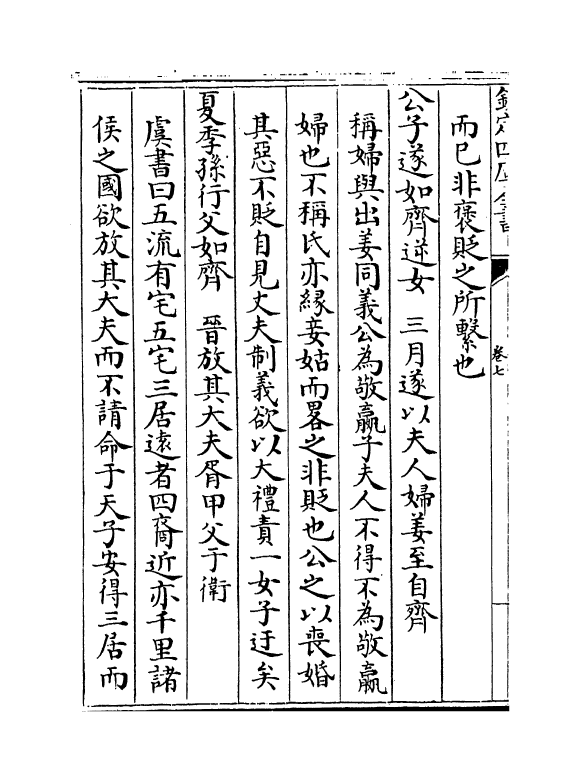 欽定四庫全書
卷七
而已非褒貶之所繫也
公子遂如齊逆女　三月遂以夫人婦姜至自齊
稱婦與出姜同義公為敬嬴子夫人不得不為敬嬴
婦也不稱氏亦緣妾姑而畧之非貶也公之以喪婚
其惡不貶自見丈夫制義欲以大禮責一女子迂矣
夏季孫行父如齊　晉放其大夫胥甲父于衛
虞書曰五流有宅五宅三居逺者四裔近亦千里諸
侯之國欲放其大夫而不請命于天子安得三居而